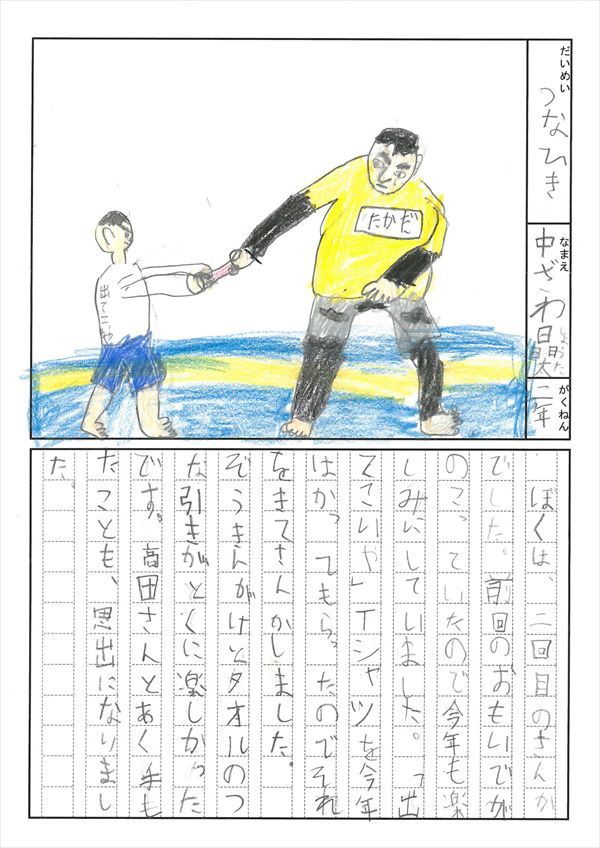 だいめい
つなひき
なまえ
中ざわ
がくねん
二年
たかだ
出てこいや
ぼくは、二回目のさんか
でした。前回のおもいでが
のこっていたので今年も楽
しみにしていました。「出
てこいや」Tシャツを今年
はかってもらったのでそれ
をきてさんかしました。
ぞうきんがけとタオルのつ
な引きがとくに楽しかった
です。高田さんとあく手も
たことも、思出になりまし
た。